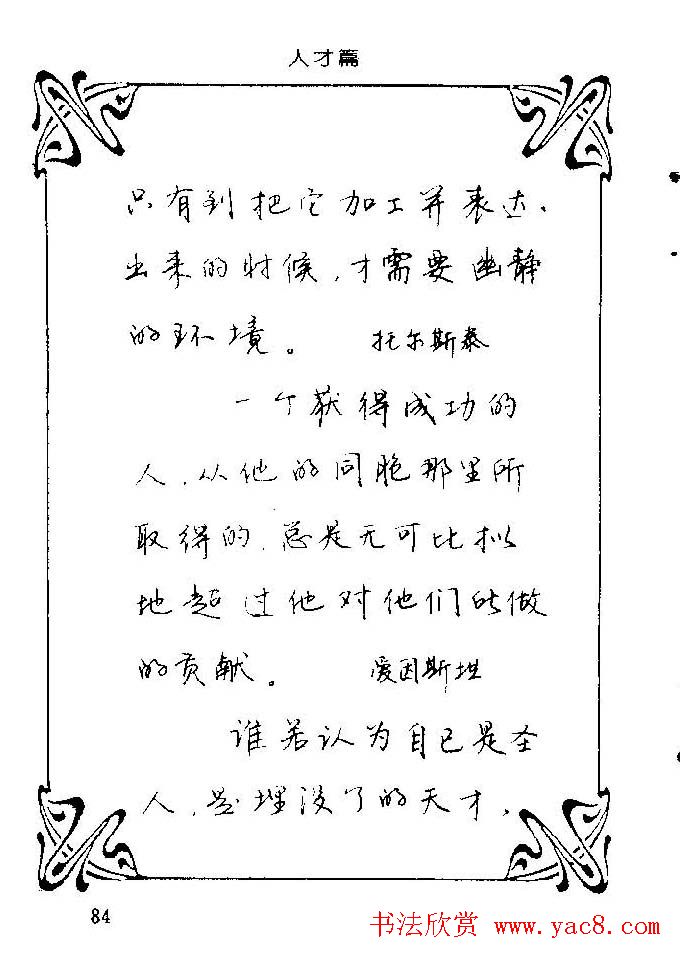 人才篇
只有到把它加工并表达、
出来的时候，才需要幽静
的环境。 托尔斯泰
一个获得成功的
人，从他的同胞那里所
取得的，总是无可比拟
地超过他对他们所做
的贡献。 爱因斯坦
谁若认为自己是圣
人，是埋没了的天才，
84
书法欣赏 www.yac8.com